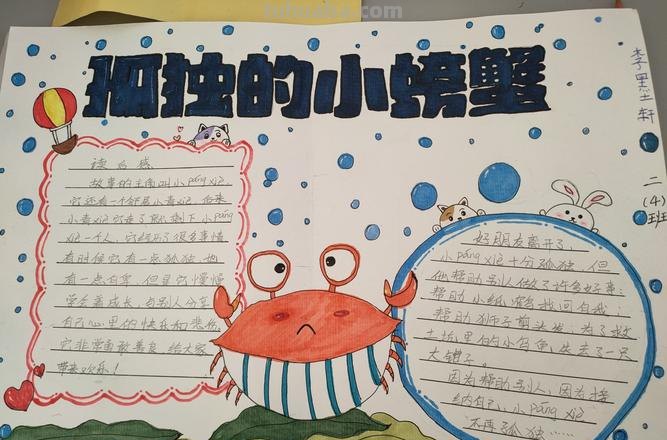 孤独的小螃蟹
李墨轩
二(4)班
读后感
故事的主角叫小pánɡ xiè
它还有一个邻居小青xiè,后来
小青xiè它走了就剩下小pánɡ
xiè一个人,它经历了很多事情
有时候它有一点孤独,也
有一点自卑,但是它慢慢
学会着成长,与别人分享
自己心里的快乐和悲伤,
它非常勇敢善良,给大家
带来欢乐!
好朋友离开了,
小pánɡ xiè十分孤独,但
他帮助别人做了许多好事,
帮助小纸 找回自我,
帮助狮子剪头发,为了救
土坑里的小白鱼,失去了一只
大钳子
因为帮助别人,因为接
纳自己,小pánɡ xiè
不再孤独……